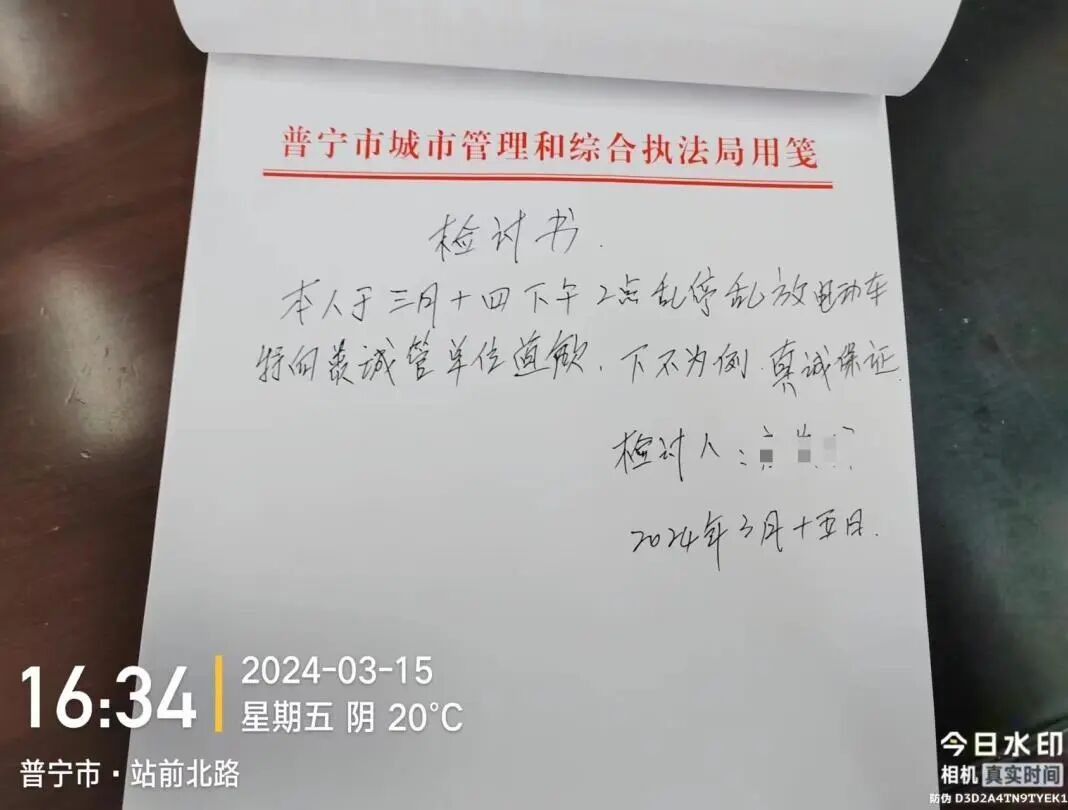 普宁市城市管理和综合执法局用笺
检讨书.
本人于三月十四下午2点乱停乱放电动车
特向 城管单位道歉.下不为例.真诚保证.
检讨人:
2024年3月十五日.
16:34
2024-03-15
星期五 阴 20℃
普宁市·站前北路
今日水印
相机 真实时间
防伪 D3D2A4TN9TYEK1